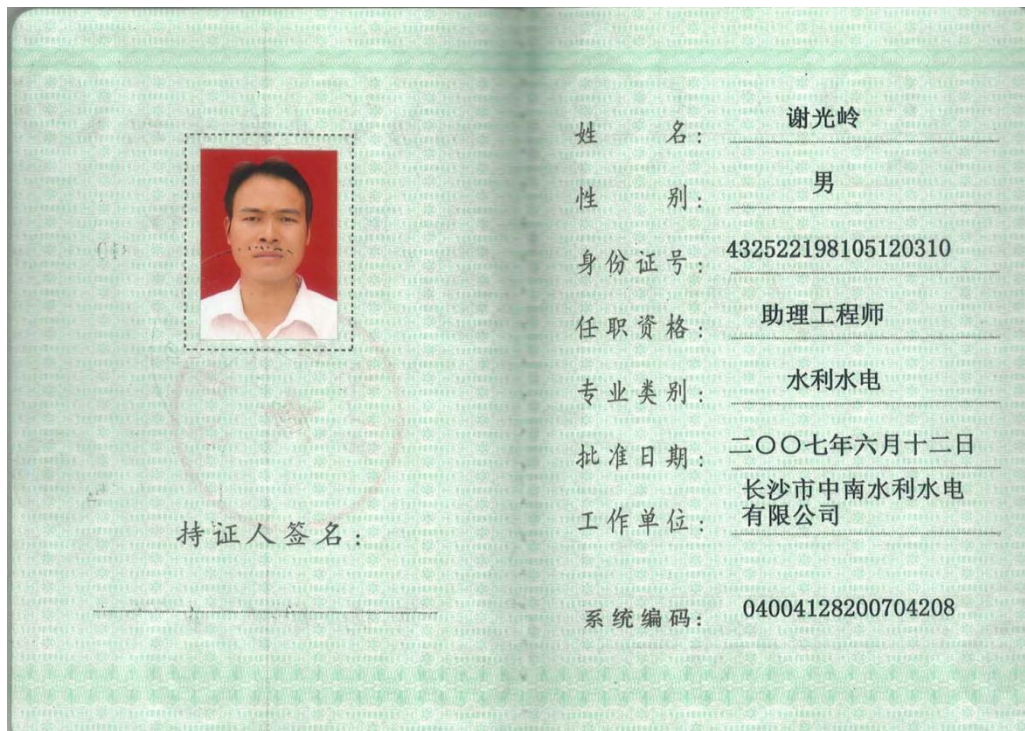 持证人签名：
姓名：谢光岭
性别：男
身份证号：432522198105120310
任职资格：助理工程师
专业类别：水利水电
批准日期：二〇〇七年六月十二日
工作单位：长沙市中南水利水电
有限公司
系统编码：04004128200704208